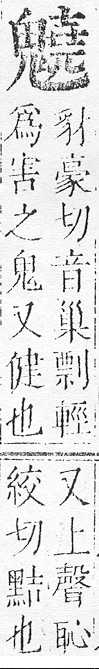 豺豪切音巢剽輕
爲害之鬼又健也
又上聲恥
絞切黠也